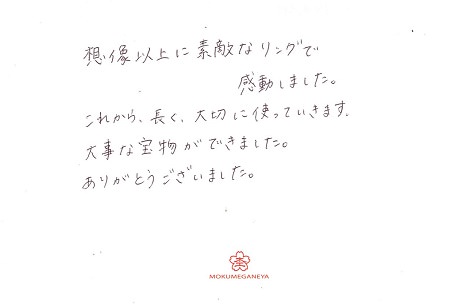 想像以上に素敵なリングで
感動しました。
これから、長く、大切に使っていきます.
大事な宝物ができました。
ありがとうございました。
MOKUMEGANEYA